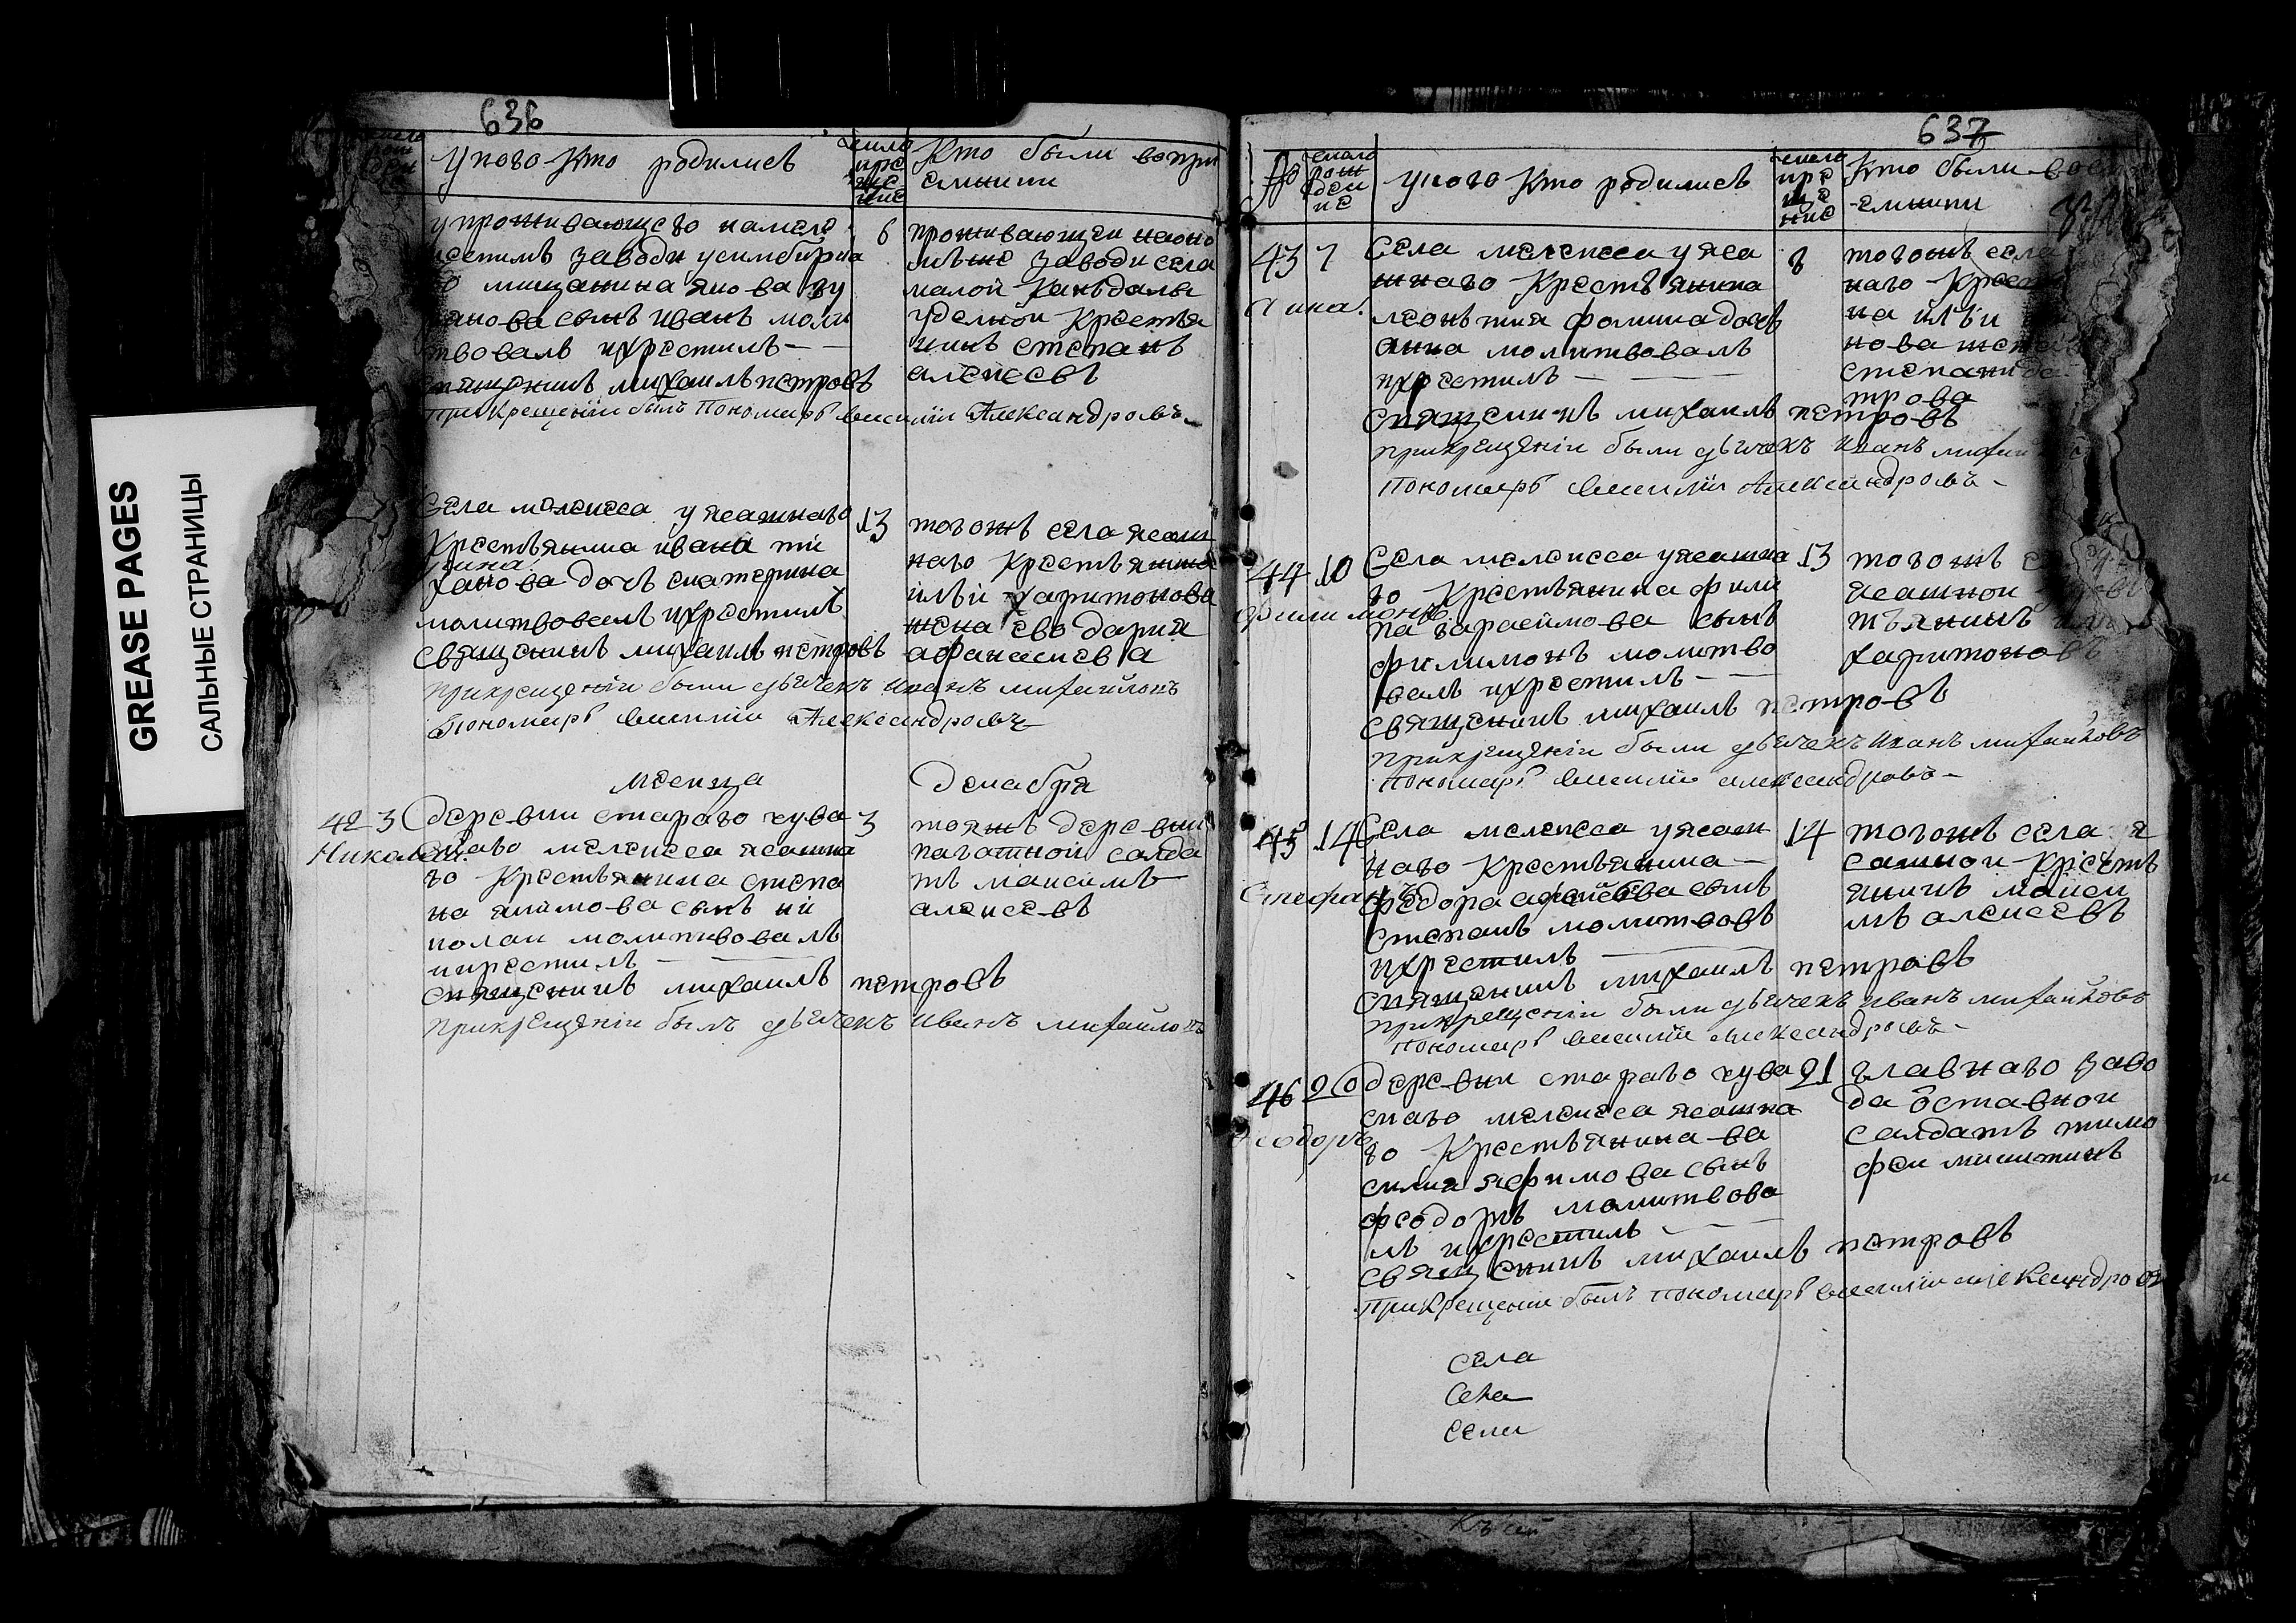 GREASE PAGES
САЛЬНЫЕ СТРАНИЦЫ
636
число
Укого Кто родились
число
кре
ще
ние
Кто были воспри
емники
упроживающего намеле
кескомъ заводи усимбирска
мищанина якова
сынъ иванъ моли
твовалъ икрестилъ
священникъ михаилъ петровъ
прикрещении былъ Пономарь василий Александровъ
6
проживающеи наоно
мъже заводи села
малой кандалы
удельной Крестья
нинъ степанъ
алексевъ
Села мелекеса уясашнаго
Крестьянина ивана ти
ханова дочь екатерина
молитвовалъ икрестилъ
священникъ михаилъ петровъ
прикрещении были дьячекъ иванъ михайловъ
Пономарь василий Александровъ
13
тогожъ села ясаш
наго крестьянина
ильи харитонова
жена ево дарья
афанасиева
месица декабря
42 3
Николай
деревни стараго чува
скаго мелекеса ясашна
го Крестьянина степа
на якимова сынъ ни
колаи молитвовалъ
икрестилъ
священникъ михаилъ петровъ
прикрещении былъ дьячекъ иванъ михайловъ
3
тояжъ деревни
пахатной салда
тъ максимъ
алексевъ
637
№
число
рож
дени
е
укого Кто родились
число
кре
ще
ние
Кто были вос
емники
43 7
Анна
Села мелекеса уяса
шнаго Крестьянина
леонтия фомина дочь
анна молитвовалъ
икрестилъ
священникъ михаилъ петровъ
прикрещении были дьячекъ иванъ
Пономарь василий Александровъ
8
тогожъ села
наго Крест
на ильи
нова жена
степанида
трова
44 10
Филимонъ
Села мелекеса уясашна
го Крестьянина фили
па гарасимова сынъ
филимонъ молитво
валъ икрестилъ
священникъ михаилъ петровъ
прикрещении были дьячекъ иванъ михайловъ
Пономарь василий александровъ
13
тогожъ
ясашной
тьянинъ
харитоновъ
45 14
Стефанъ
Села мелекеса уясаш
наго Крестьянина
федора сынъ
степанъ молитвовъ
икрестилъ
священникъ михаилъ петровъ
прикрещении были дьячекъ иванъ михайловъ
Пономарь василий Александровъ
14
тогожъ села я
сашной Кресть
янинъ макси
мъ алексеевъ
46 20
Феодоръ
деревни стараго чува
скаго мелекеса ясашна
го Крестьянина ва
силия яфимова сынъ
феодоръ молитвова
лъ икрестилъ
священникъ михаилъ петровъ
Прикрещении былъ пономарь василий александровъ
21
главнаго заво
да оставной
салдатъ тимо
феи микитинъ
села
села
сели